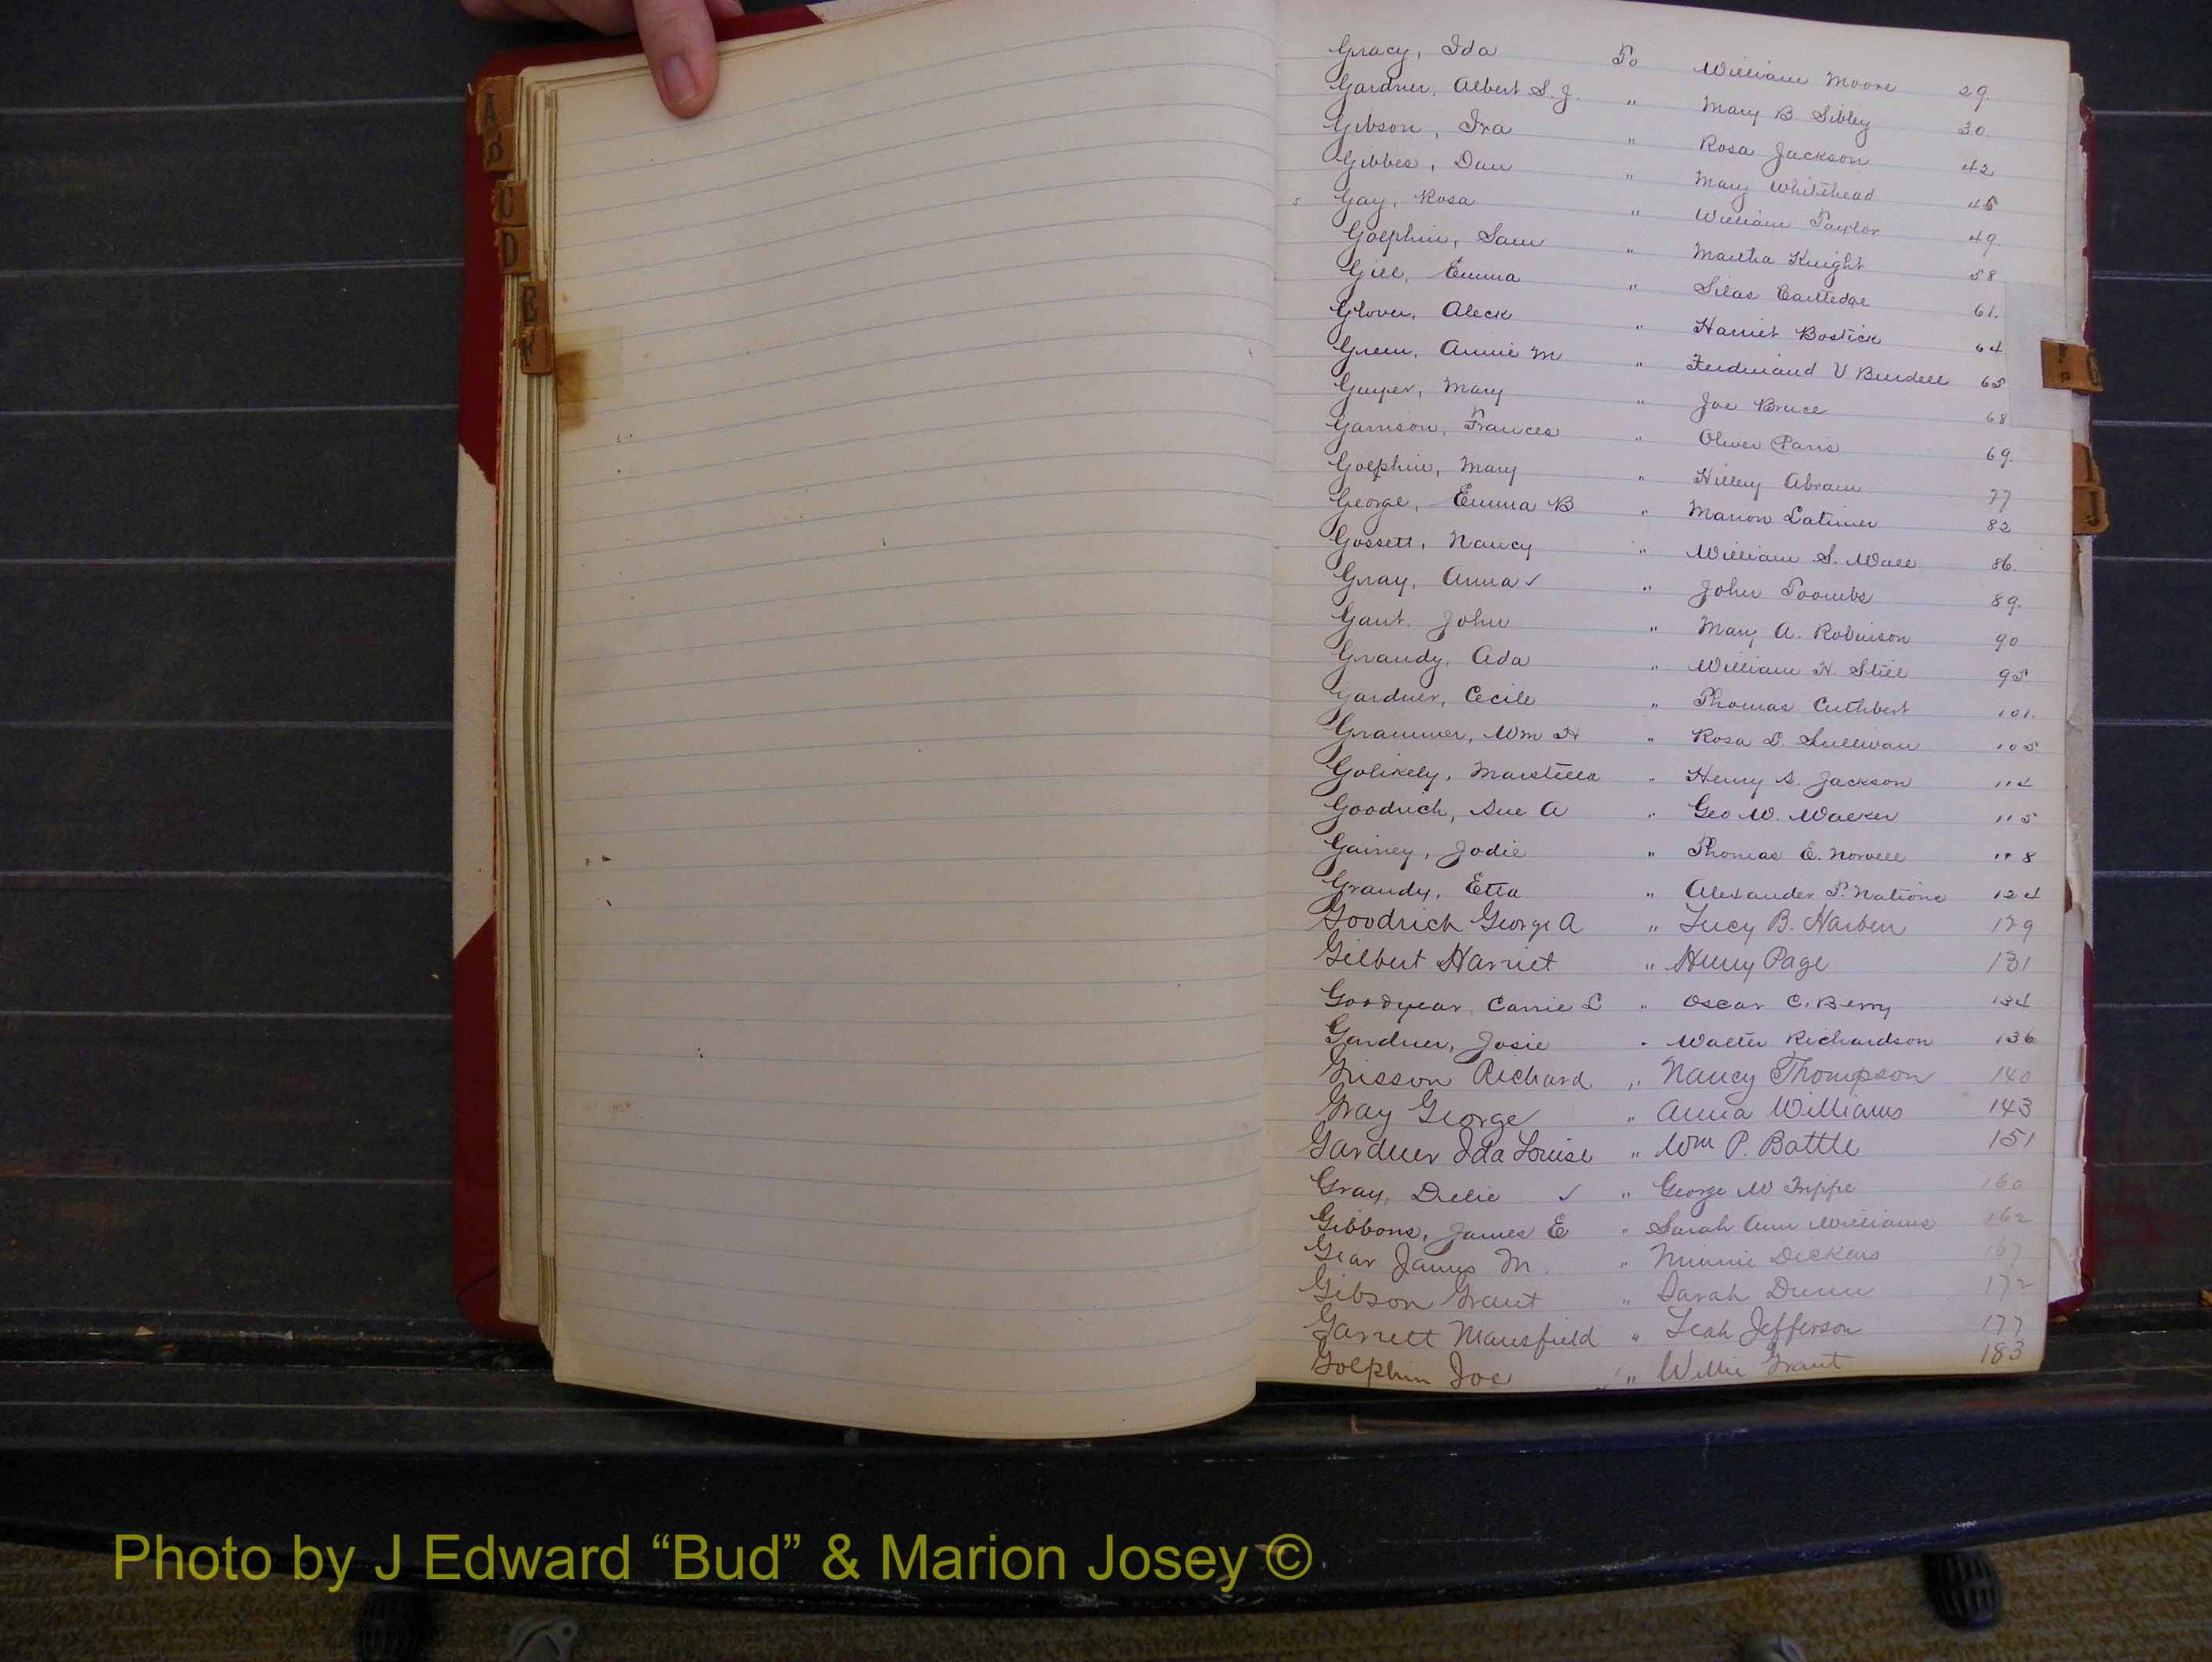 A
B
C
D
E
F
Gracy, Ida To William Moore 29.
Gardner, Albert S. J. " Mary B. Sibley 30.
Gibson, Ira " Rosa Jackson 42
Gibbes, Dan " Mary Whitehead 45
Gay, Rosa " William Taylor 49.
Golphin, Sam " Martha Knight 58
Gill, Emma " Silas Cartledge 61.
Glover, Aleck " Harriet Bostick 64
Green, Annie M " Ferdinand V Burdell 65
Guyer, Mary " Joe Bruce 68
Garrison, Frances " Oliver Paris 69.
Golphin, Mary " Hilley Abram 77
George, Emma B " Marion Latimer 82
Gossett, Nancy " William S. Wall 86.
Gray, Anna ✓ " John Toombs 89.
Gant. John " Mary A. Robinson 90
Grandy, Ada " William H. Still 95
Gardner, Cecile " Thomas Cuthbert 101.
Grammer, Wm H " Rosa L. Sullivan 105
Golikely, Marstella " Henry S. Jackson 114
Goodrich, Sue A " Geo W. Walker 115
Gainey, Jodie " Thomas E. Norvell 118
Grandy, Etta " Alexander P. Nations 124
Goodrich George A " Lucy B. Harben 129
Gilbert Harriet " Henry Page 131
Goodyear, Carrie L " Oscar C. Berry 134
Gardner, Josie " Walter Richardson 136
Grisson Richard " Nancy Thompson 140
Gray George " Anna Williams 143
Gardner Ida Louise " Wm P. Battle 151
Gray, Delie ✓ " George W Trippe 160
Gibbons, James E " Sarah Ann Williams 162
Gear James M. " Minnie Dickens 167
Gibson Grant " Sarah Dunn 172
Garrett Mansfield " Leah Jefferson 177
Golphin Joe " Willie Grant 183
Photo by J Edward “Bud” & Marion Josey ©